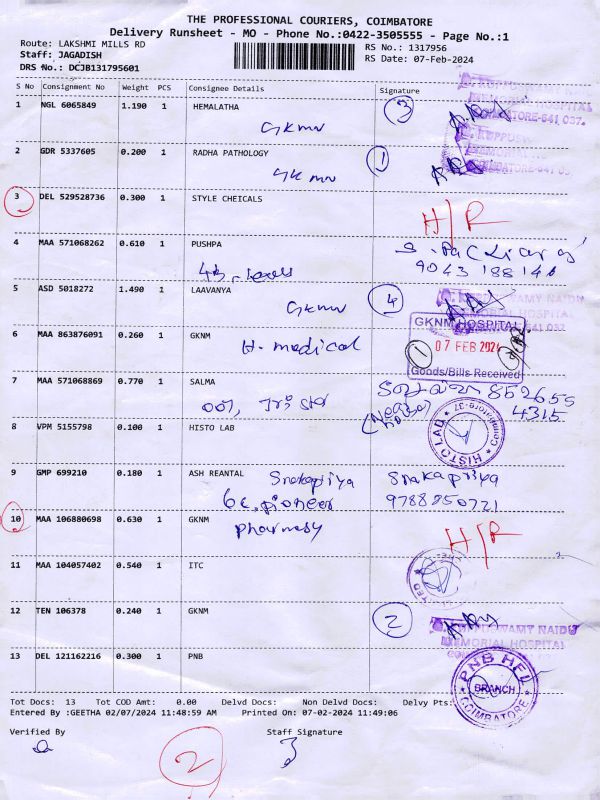 THE PROFESSIONAL COURIERS, COIMBATORE
Delivery Runsheet - MO - Phone No.:0422-3505555 - Page No.:1
Route: LAKSHMI MILLS RD
Staff: JAGADISH
DRS No.: DCJB131795601
RS No.: 1317956
RS Date: 07-Feb-2024
S No Consignment No Weight PCS Consignee Details Signature
1 NGL 6065849 1.190 1 HEMALATHA 3
GKMN
COIMBATORE-641 037.
2 GDR 5337605 0.200 1 RADHA PATHOLOGY 1
GKMN
3 DEL 529528736 0.300 1 STYLE CHEICALS H/R
4 MAA 571068262 0.610 1 PUSHPA
5 ASD 5018272 1.490 1 LAAVANYA 4
GKMN
GKNM HOSPITAL
6 MAA 863876091 0.260 1 GKNM
H. medical
1 07 FEB 2024
Goods/Bills Received
7 MAA 571068869 0.770 1 SALMA 852655
4315
8 VPM 5155798 0.100 1 HISTO LAB
HISTO LAB
9 GMP 699210 0.180 1 ASH REANTAL
9788850721
6c, pioneer
10 MAA 106880698 0.630 1 GKNM H/R
pharmasy
11 MAA 104057402 0.540 1 ITC
12 TEN 106378 0.240 1 GKNM 2
MEMORIAL HOSPITAL
13 DEL 121162216 0.300 1 PNB
BRANCH
COIMBATORE
Tot Docs: 13 Tot COD Amt: 0.00 Delvd Docs: Non Delvd Docs: Delvy Pts:
Entered By :GEETHA 02/07/2024 11:48:59 AM Printed On: 07-02-2024 11:49:06
Verified By Staff Signature
2